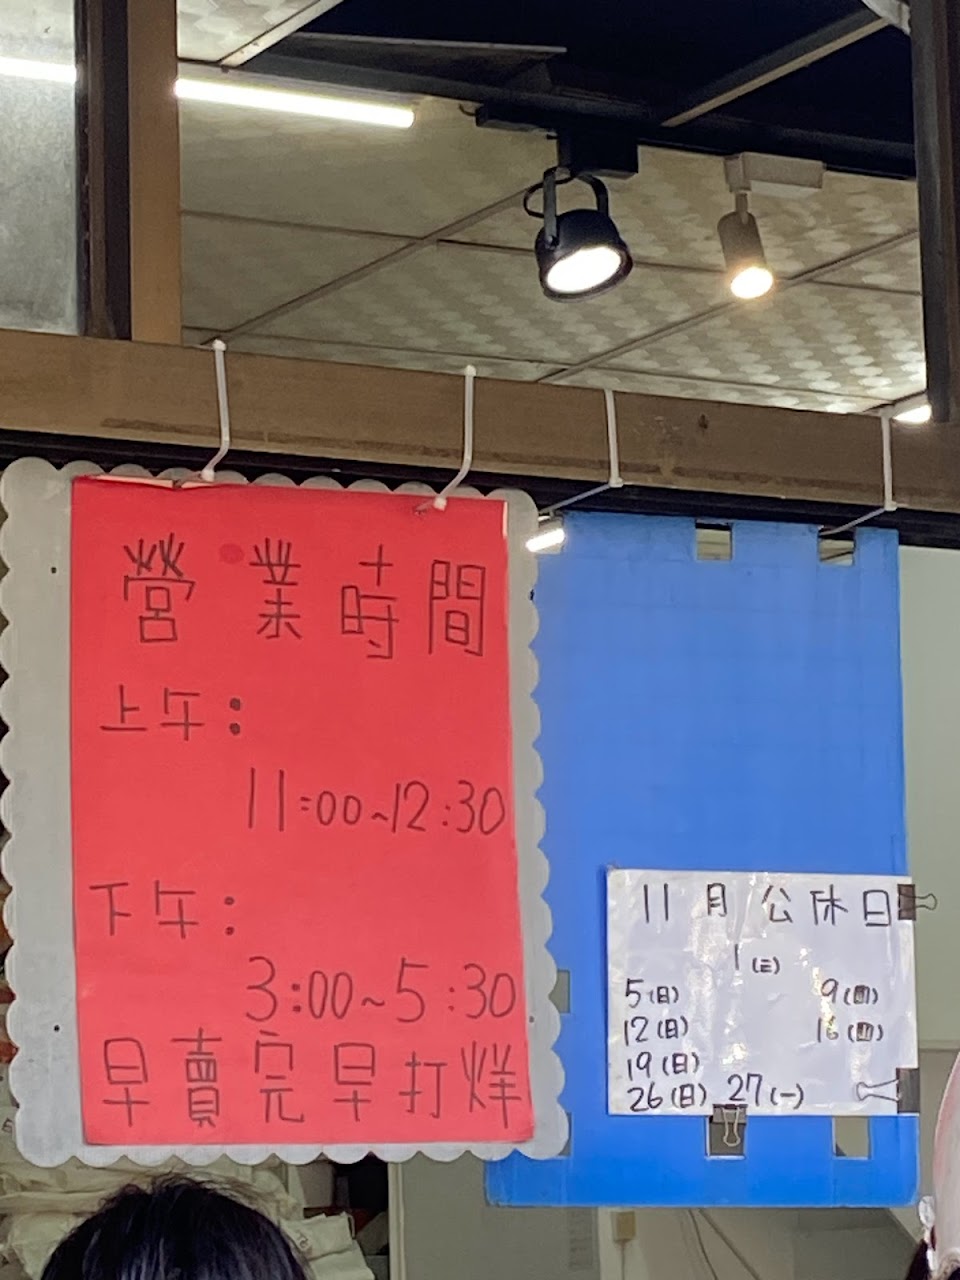 營業時間
上午：
11:00~12:30
下午：
3:00~5:30
早賣完早打烊
11月公休日
1(三)
5(日) 9(四)
12(日) 16(四)
19(日)
26(日) 27(一)